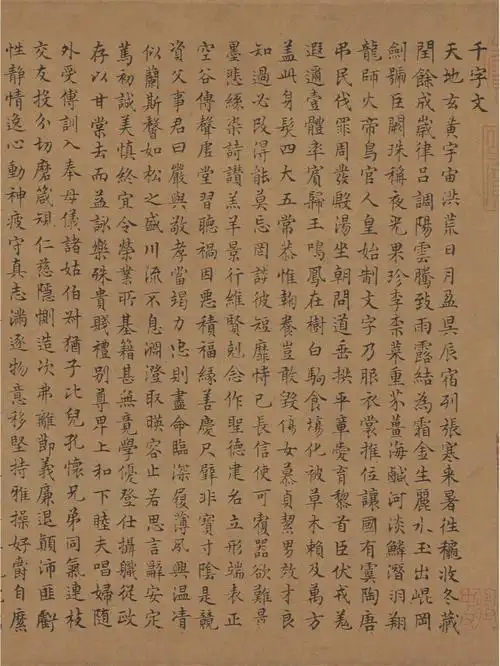 千字文
天地玄黃宇宙洪荒日月盈昃辰宿列張寒來暑往穐收冬藏
閏餘成歲律呂調陽雲騰致雨露結為霜金生麗水玉出崐岡
劍號巨闕珠稱夜光果珍李柰菜重芥薑海鹹河淡鱗潛羽翔
龍師火帝鳥官人皇始制文字乃服衣裳推位讓國有虞陶唐
弔民伐罪周發殷湯坐朝問道垂拱平章愛育黎首臣伏戎羌
遐邇壹體率賓歸王鳴鳳在樹白駒食場化被草木賴及萬方
蓋此身髮四大五常恭惟鞠養豈敢毀傷女慕貞絜男效才良
知過必改得能莫忘罔談彼短靡恃己長信使可覆器欲難量
墨悲絲染詩讚羔羊景行維賢剋念作聖德建名立形端表正
空谷傳聲虛堂習聽禍因惡積福緣善慶尺璧非寶寸陰是競
資父事君曰嚴與敬孝當竭力忠則盡命臨深履薄夙興溫凊
似蘭斯馨如松之盛川流不息淵澄取暎容止若思言辭安定
篤初誠美慎終宜令榮業所基籍甚無竟學優登仕攝職從政
存以甘棠去而益詠樂殊貴賤禮別尊卑上和下睦夫唱婦隨
外受傅訓入奉母儀諸姑伯叔猶子比兒孔懷兄弟同氣連枝
交友投分切磨箴規仁慈隱惻造次弗離節義廉退顛沛匪虧
性靜情逸心動神疲守真志滿逐物意移堅持雅操好爵自縻